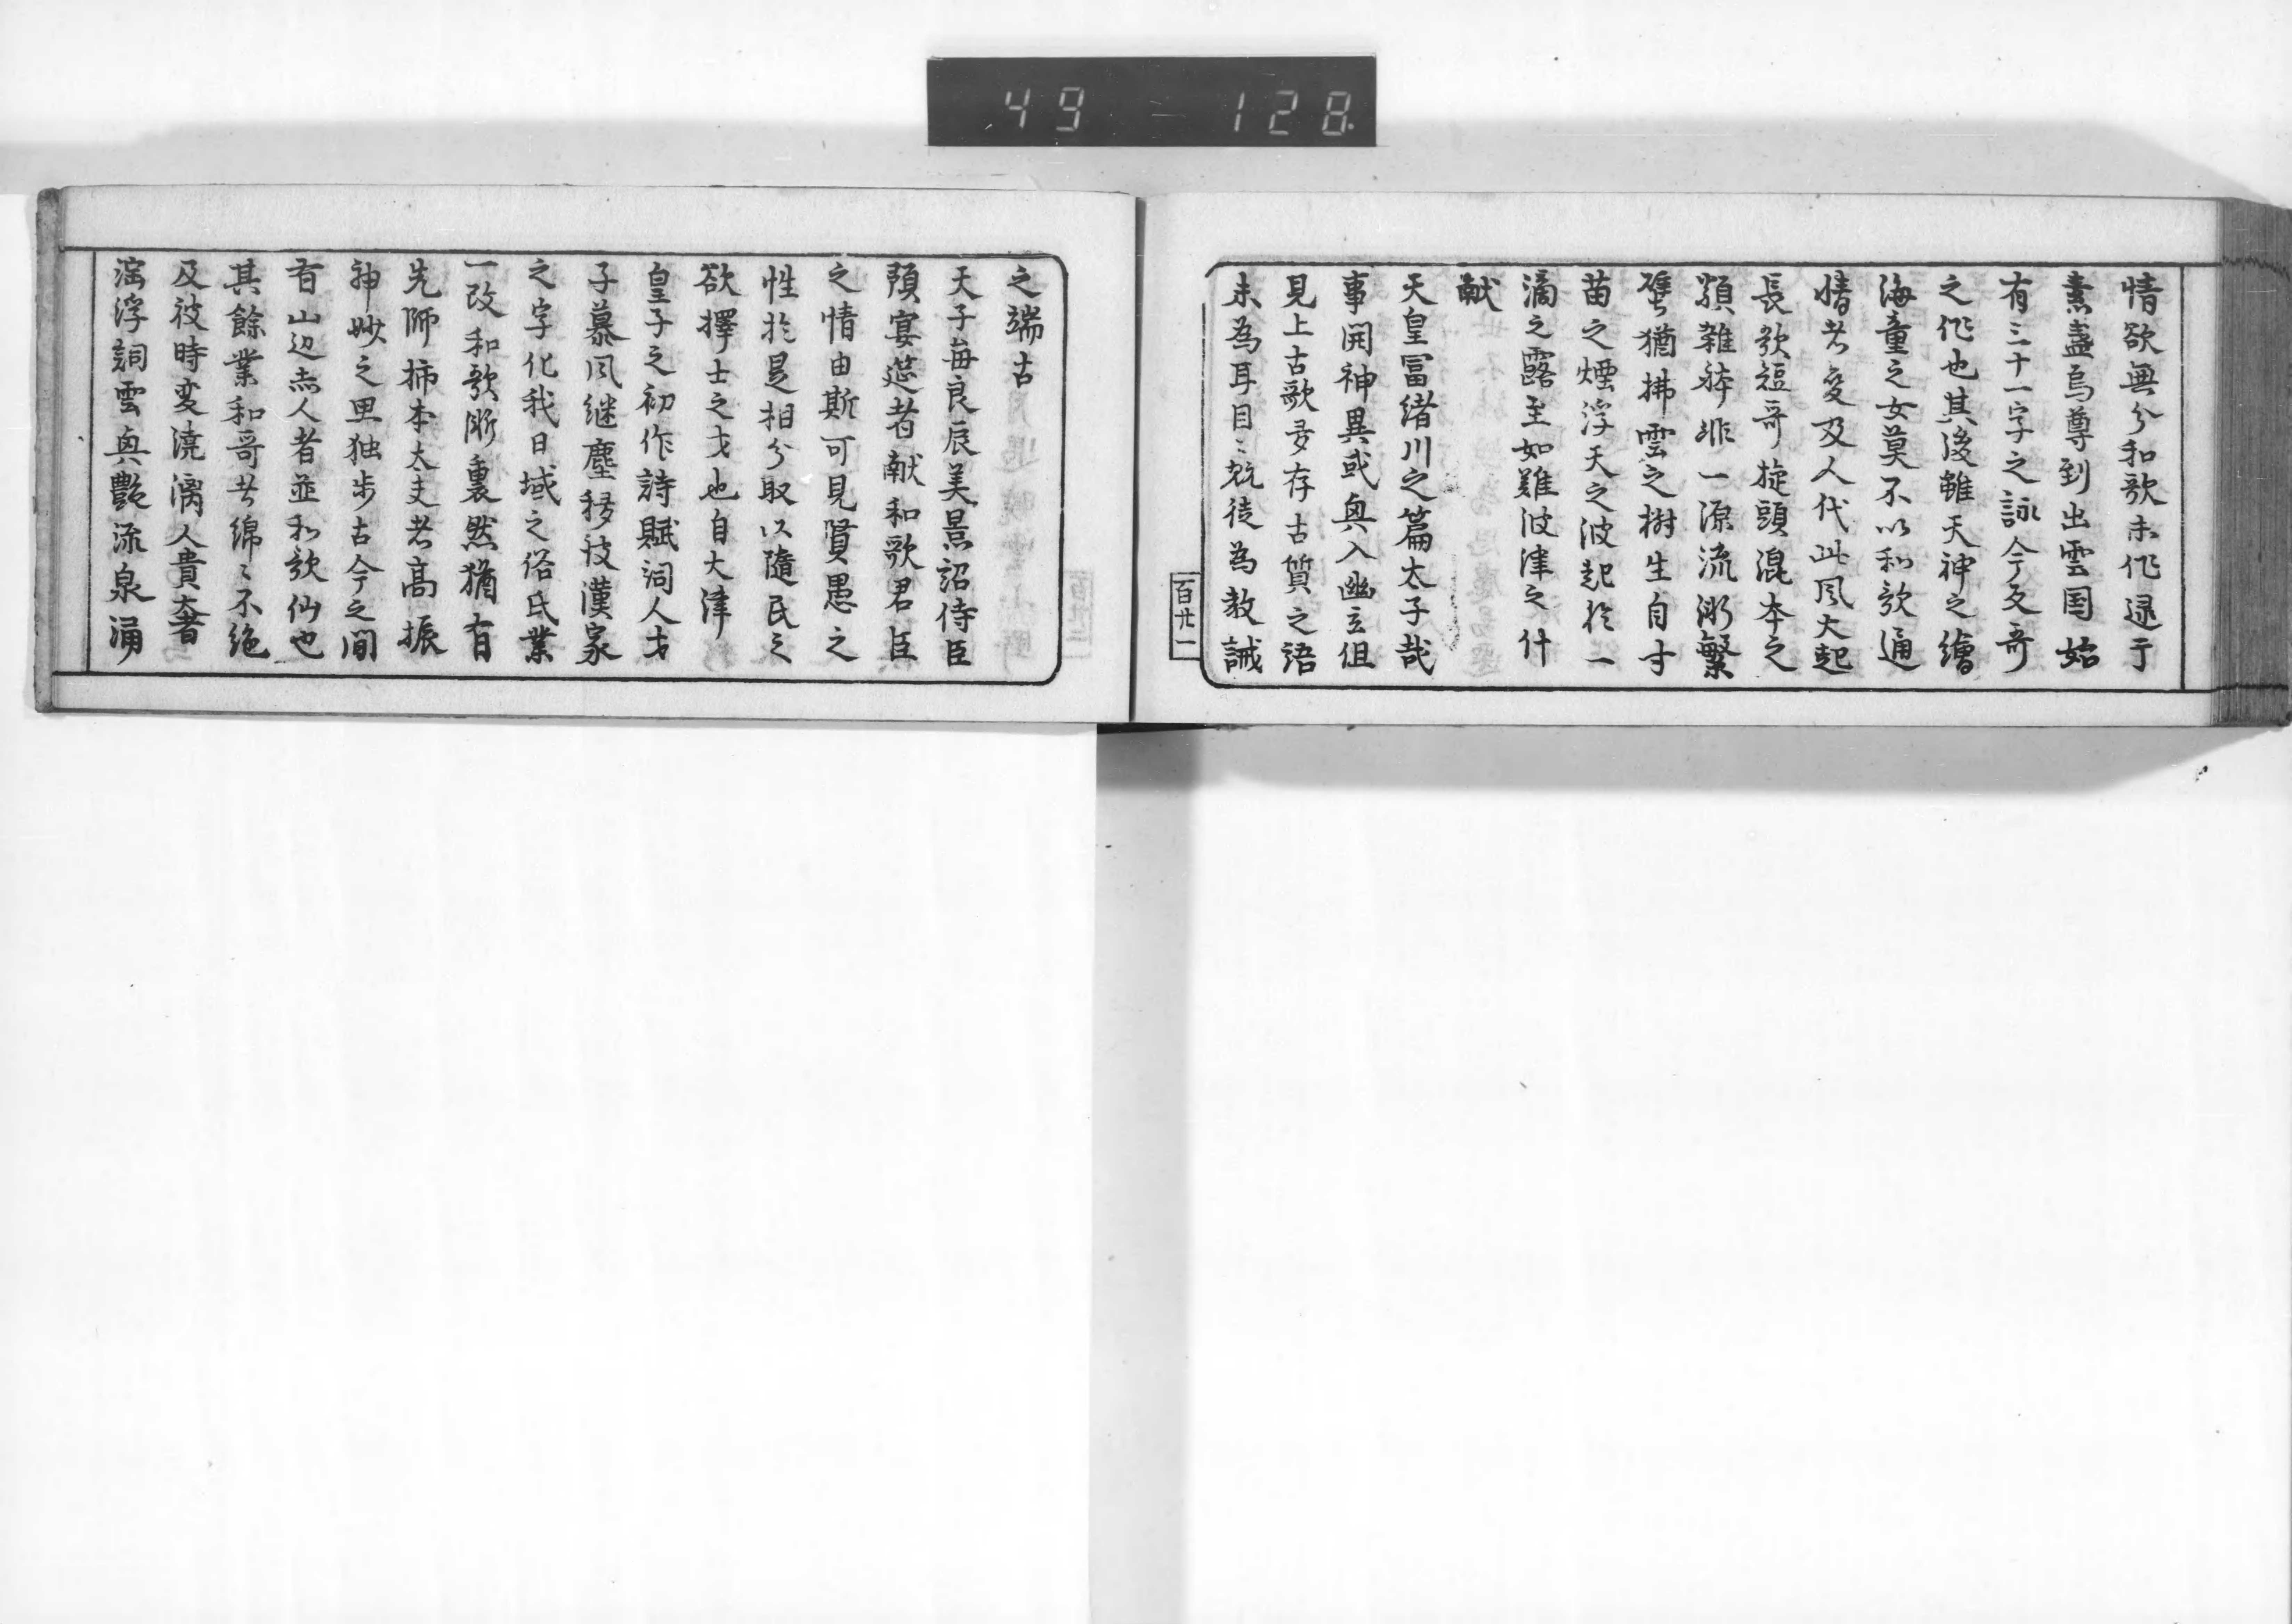 49 - 128
情欲無分和歌未作逮于
素盞烏尊到出雲国始
有三十一字之詠今反哥
之作也其後雖天神之繪
海童之女莫不以和歌通
情者爰及人代此風大起
長歌短哥旋頭混本之
類雑躰非一源流漸繁
譬猶拂雲之樹生自寸
苗之煙浮天之波起於一
滴之露至如難波津之什
献
天皇冨緒川之篇太子哉
事開神異或興入幽玄但
見上古歌多存古質之語
未為耳目〻翫徒為教誡
百廿一
之端古
天子毎良辰美景詔侍臣
預宴莚者献和歌君臣
之情由斯可見賢愚之
性於是相分取以隨民之
欲擇士之才也自大津
皇子之初作詩賦詞人才
子慕風継塵移彼漢家
之字化我日域之俗民業
一改和歌漸衰然猶有
先師柿本太夫者高振
神妙之思独歩古今之間
有山辺赤人者並和歌仙也
其餘業和哥者綿〻不絶
及彼時変澆漓人貴奢
滛浮詞雲興艶流泉涌